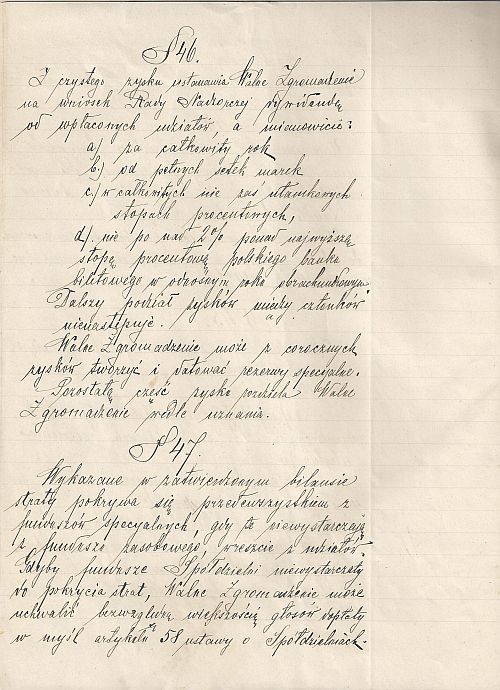 § 46.
Z czystego zysku ustanawia Walne Zgromadzenie
na wniosek Rady Nadzorczej dywidendę
od wpłaconych udziałów, a mianowicie:
a) za całkowity rok
b) od pełnych setek marek
c.) w całkowitych nie zaś ułamkowych
stopach procentowych,
d). nie po nad 2% ponad najwyższą
stopę procentową polskiego banku
biletowego w odnośnym roku obrachunkowym
Dalszy podział zysków między członków
nienastępuje.
Walne Zgromadzenie może z corocznych
zysków tworzyć i dotować rezerwy specjalne.
Pozostałą część zysku rozdziela Walne
Zgromadzenie wedle uznania.
§ 47.
Wykazane w zatwierdzonym bilansie
straty pokrywa się przedewszystkiem z
funduszów specyalnych, gdy te niewystarczają
z funduszu zasobowego, wreszcie z udziałów.
Gdyby fundusze Spółdzielni niewystarczały
do pokrycia strat, Walne Zgromadzenie może
uchwalić bezwzględną większością głosów dopłaty
w myśl artykułu 58 ustawy o Spółdzielniach.